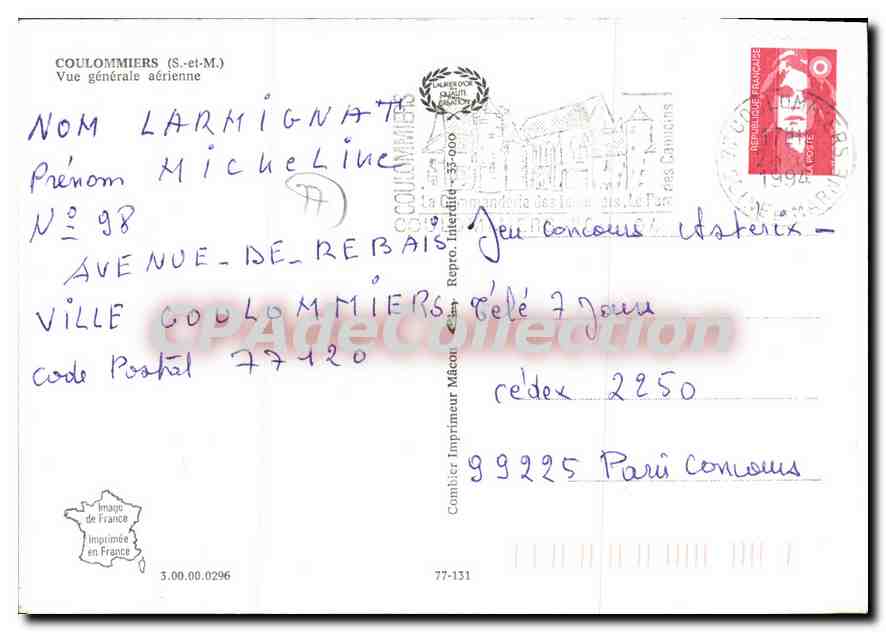 COULOMMIERS (S.-et-M.)
Vue générale aérienne
NOM LARMIGNAT
Prénom MicheLine
Nº 98
AVENUE-DE-REBAIS
VILLE COULOMMIERS
code Postal 77120
Image
de France
Imprimée
en France
3.00.00.0296
LAURIER D'OR
QUALITÉ
CRÉATION
Combier Imprimeur Mâcon
Repro. Interdite - 33-000
77-131
COULOMMIERS
La Commanderie des Templiers. Le Parc
des Capucins
RÉPUBLIQUE FRANÇAISE
LA POSTE
1994
Jeu concours Asterix -
Télé 7 Jours
cédex 2250
99225 Paris Concours
CPAdeCollection